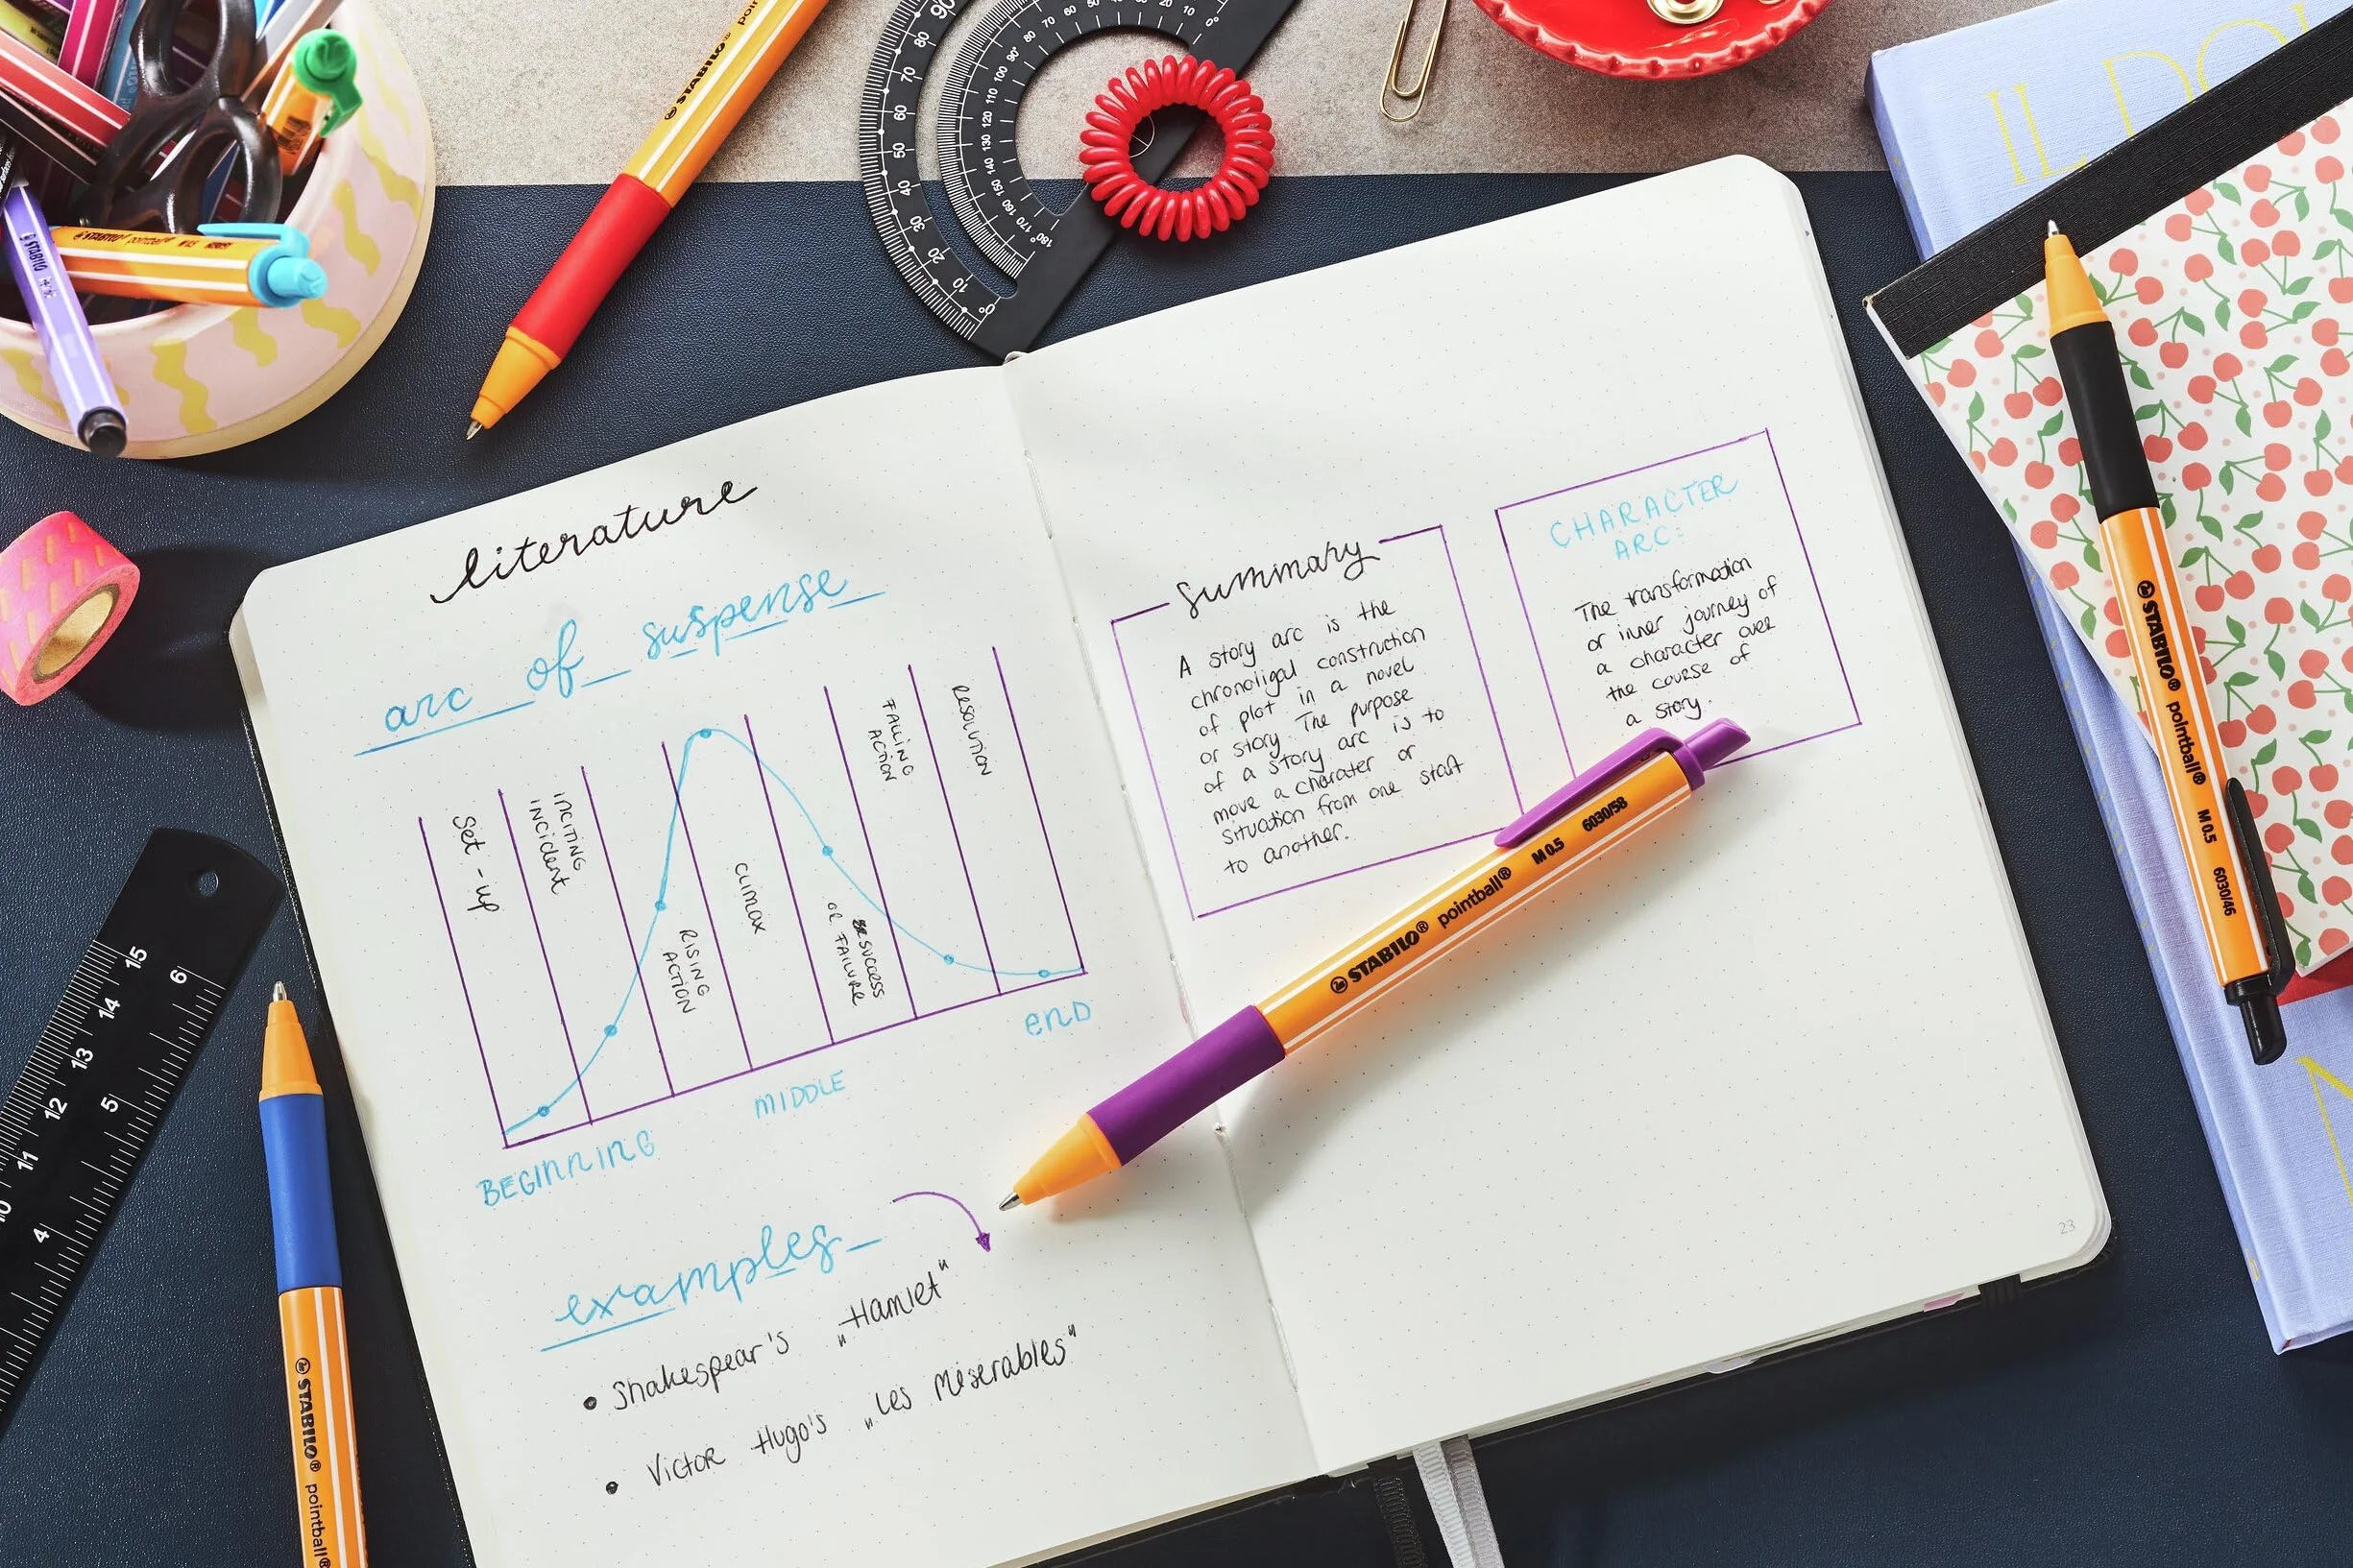 STABILO®
STABILO® pointball®
literature
arc of suspense
Set-up
INCITING
INCIDENT
RISING
ACTION
CLIMAX
SUCCESS
OR FAILURE
FALLING
ACTION
RESOLUTION
BEGINNING
MIDDLE
END
examples
• Shakespear's „Hamlet"
• Victor Hugo's „Les Miserables"
summary
A story arc is the
chronoligal construction
of plot in a novel
or story. The purpose
of a story arc is to
move a charater or
situation from one start
to another.
CHARACTER
ARC:
The transformation
or inner journey of
a character over
the course of
a story.
23
STABILO® pointball® M 0.5 6030/58
STABILO® pointball® M 0.5 6030/46
STABILO® pointball®
15
14
13
12
11
10
6
5
4
90
80
70
60
50
40
30
20
10
0°
80
90°
100
110
120
130
140
150
160
170
180°
IL DO